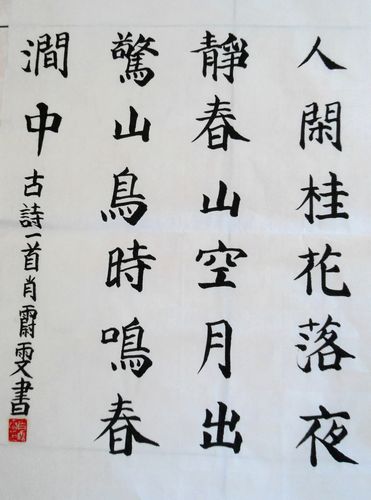 人閑桂花落夜
靜春山空月出
驚山鳥時鳴春
澗中
古詩一首肖霨雯書